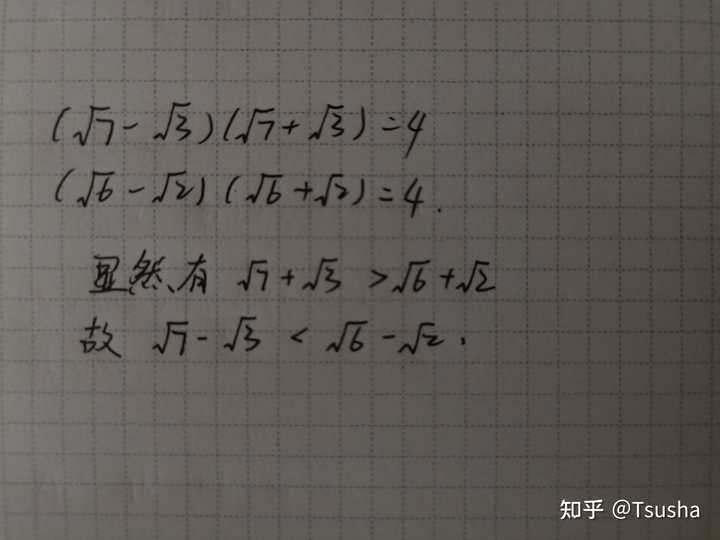 (√7-√3)(√7+√3)=4
(√6-√2)(√6+√2)=4.
显然、有 √7+√3 >√6+√2
故 √7-√3 < √6-√2.
知乎 @Tsusha